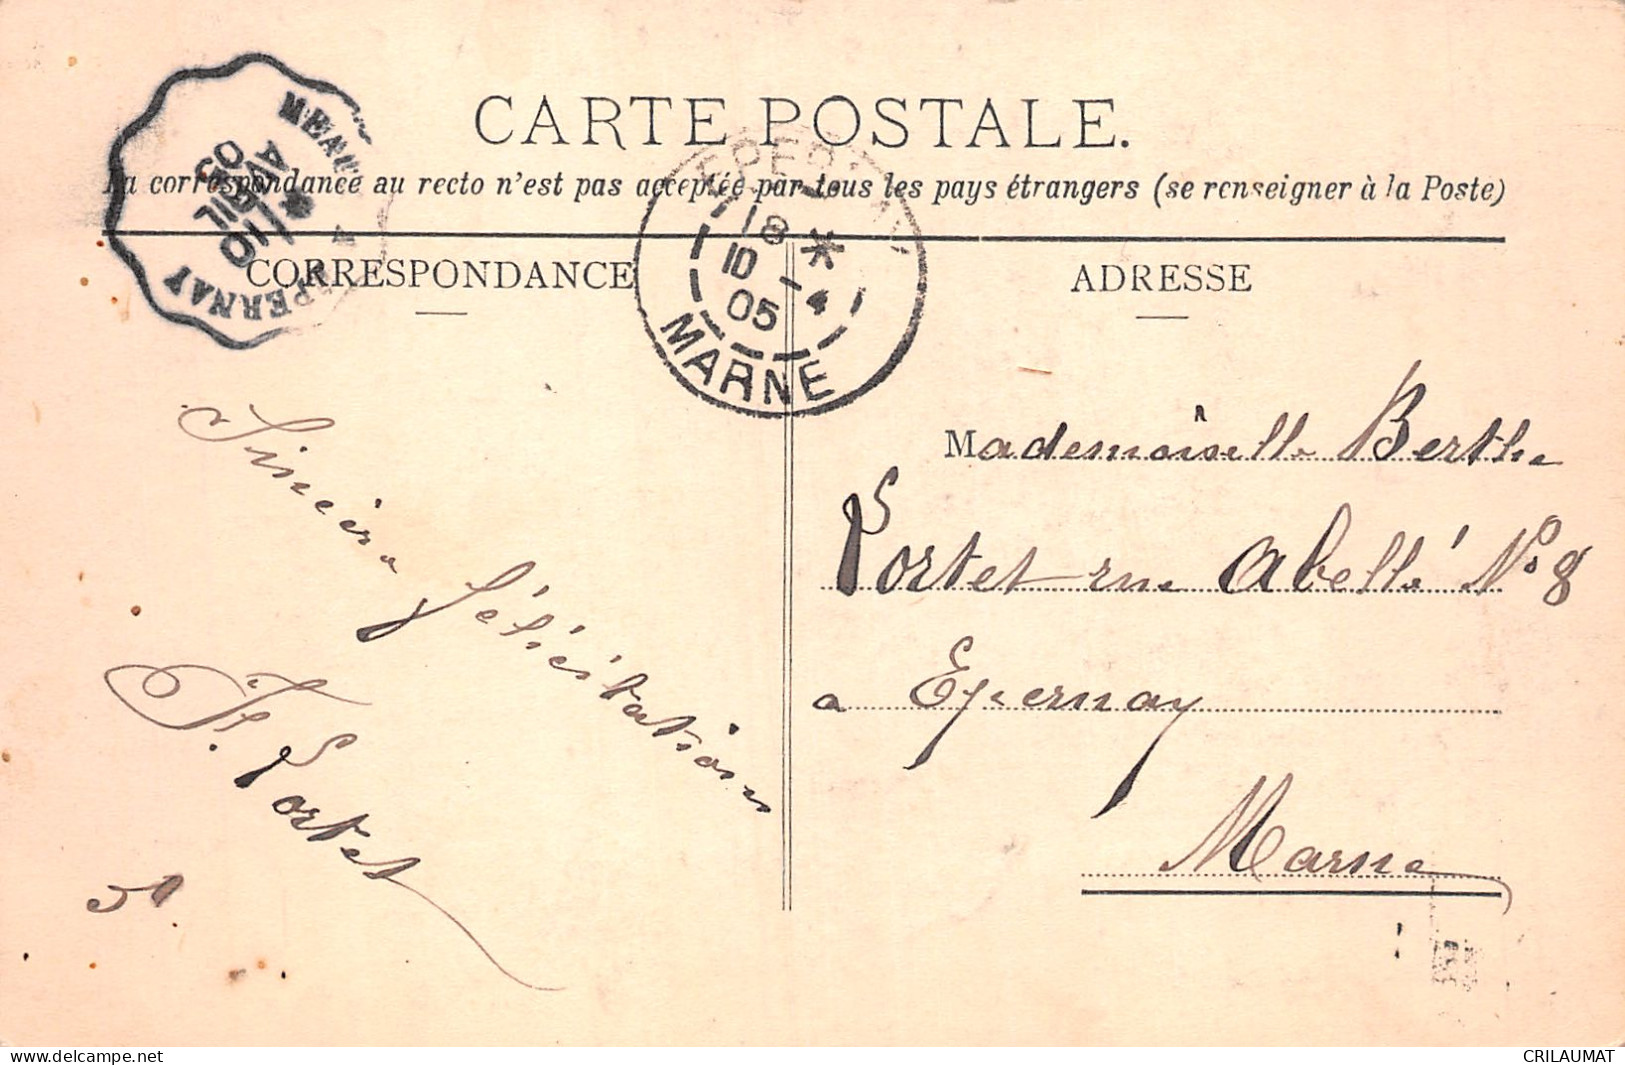 CARTE POSTALE.
La correspondance au recto n'est pas acceptée par tous les pays étrangers (se renseigner à la Poste)
MEAUX
EPERNAY
10
AVRIL
05
EPERNAY
18
10 - 4
05
MARNE
CORRESPONDANCE
ADRESSE
Sincères félicitations
Portet
Mademoiselle Berthe
Portet rue Abellé No 8
a Epernay
Marne
CRILAUMAT